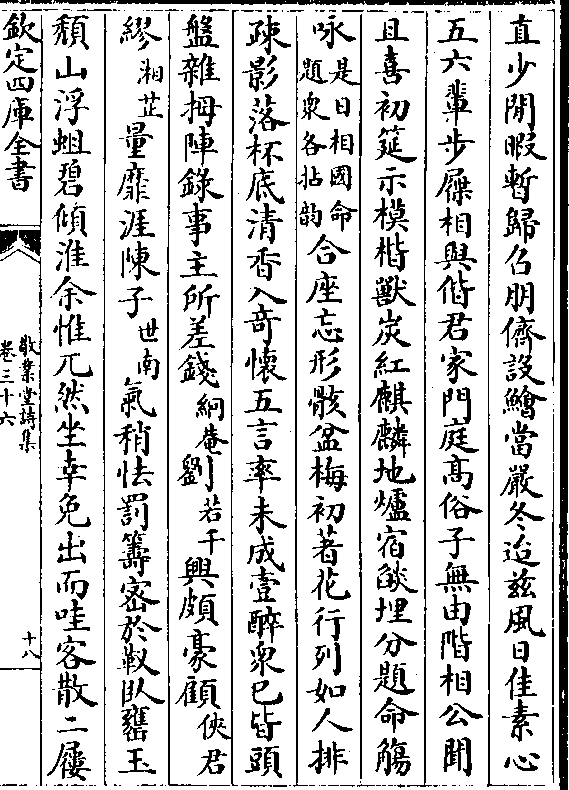 直少閒暇暫歸召朋儕設鱠當嚴冬迨兹風日佳素心
五六輩步屧相與偕君家門庭高俗子無由階相公聞
且喜初筵示模楷獸炭紅麒麟地爐宿燄埋分題命觴
咏是日相國命題衆各拈韵合座忘形骸盆梅初著花行列如人排
疎影落杯底清香入竒懷五言率未成壺醉衆已皆頭
盤雜拇陣錄事主所差錢絅菴劉若千興頗豪顧俠君
繆湘芷量靡涯陳子世南氣稍怯罰籌密於靫臥甕玉
頽山浮蛆碧傾淮余惟兀然坐幸免出而哇客散二屨
欽定四庫全書
敬業堂詩集
卷三十六
十八